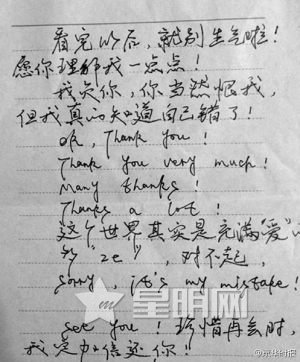 看完以后，就别生气啦！
愿你理解我一点点！
我负你，你当然恨我，
但我真的知道自己错了！
Oh, Thank you!
Thank you very much!
Many thanks!
Thanks a lot!
这个世界其实是充满“爱”
对不起，
sorry, it's my mistake!
星明网
see you! 珍惜再会时，
我定加倍还你！